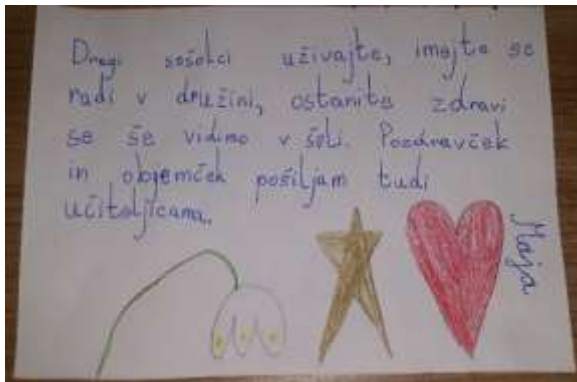 Dragi sošolci uživajte, imejte se
radi v družini, ostanite zdravi
se še vidimo v šoli. Pozdravček
in objemček pošiljam tudi
učiteljicama.
Maja